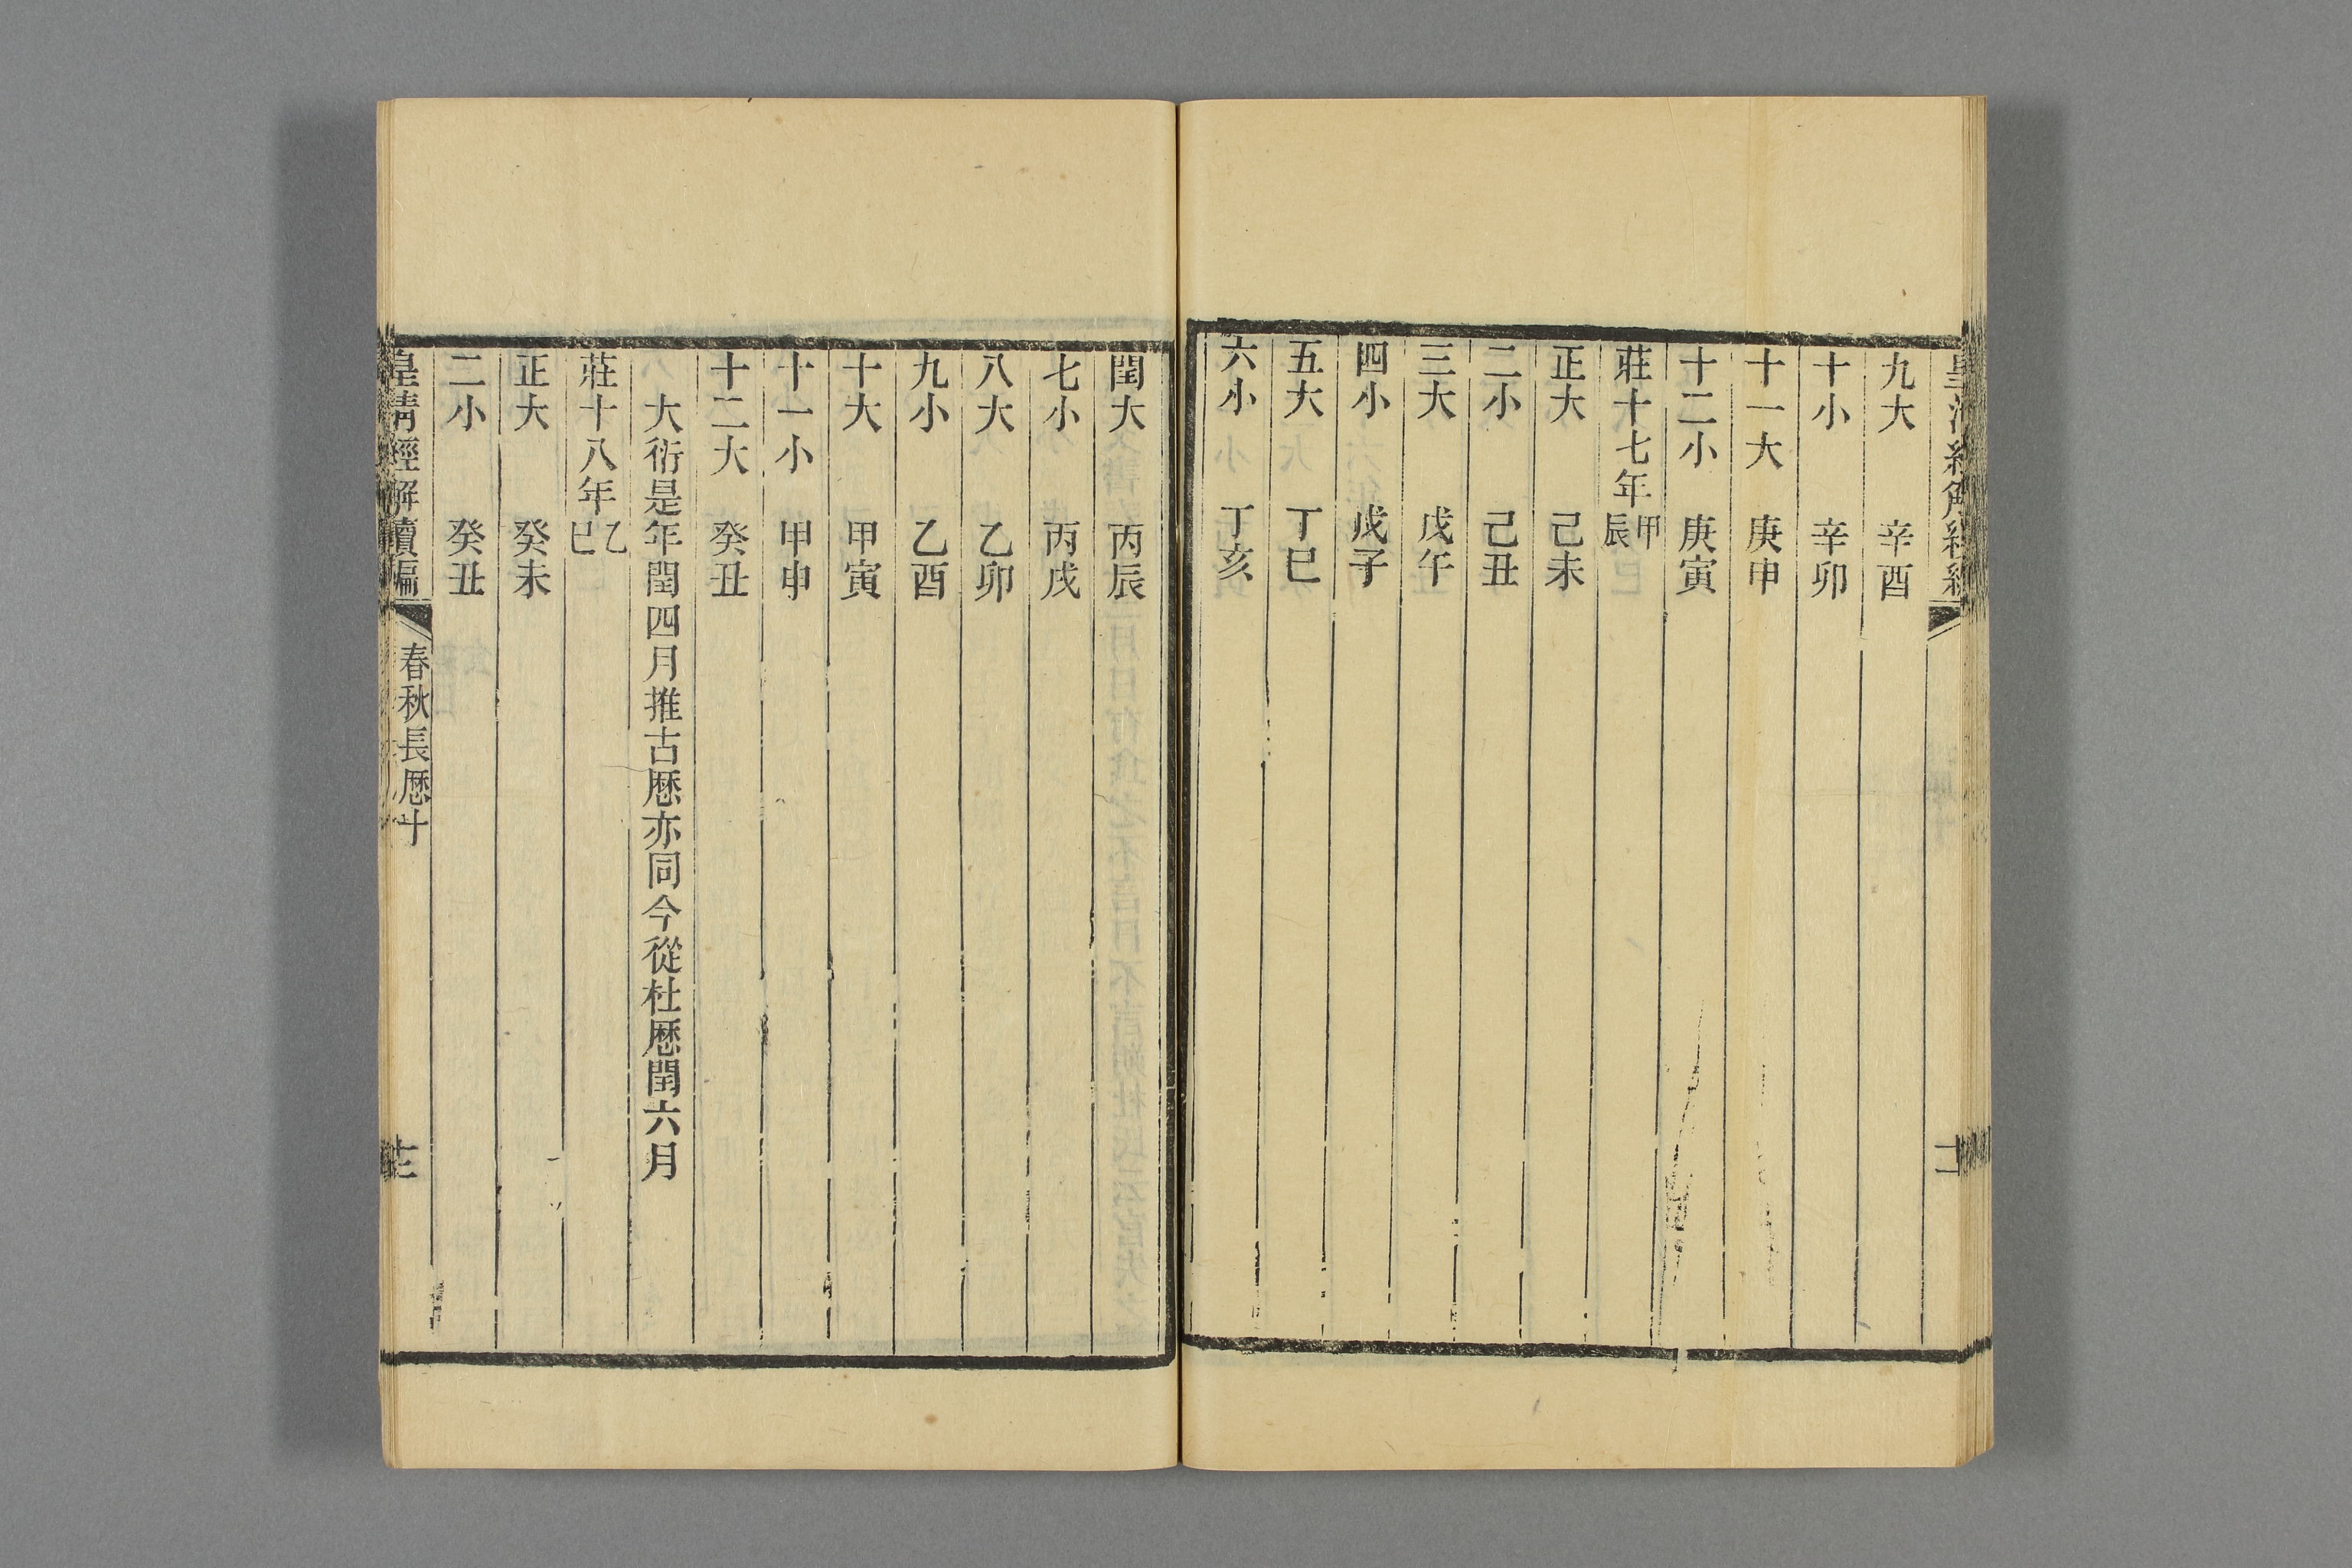 九大　辛酉
十小　辛卯
十一大　庚申
十二小　庚寅
莊十七年甲辰
正大　己未
二小　己丑
三大　戊午
四小　戊子
五大　丁巳
六小　丁亥
閏大　丙辰
七小　丙戌
八大　乙卯
九小　乙酉
十大　甲寅
十一小　甲申
十二大　癸丑
大衍是年閏四月推古厯亦同今從杜厯閏六月
莊十八年乙巳
正大　癸未
二小　癸丑
皇清經解續編　春秋長厯十　十三